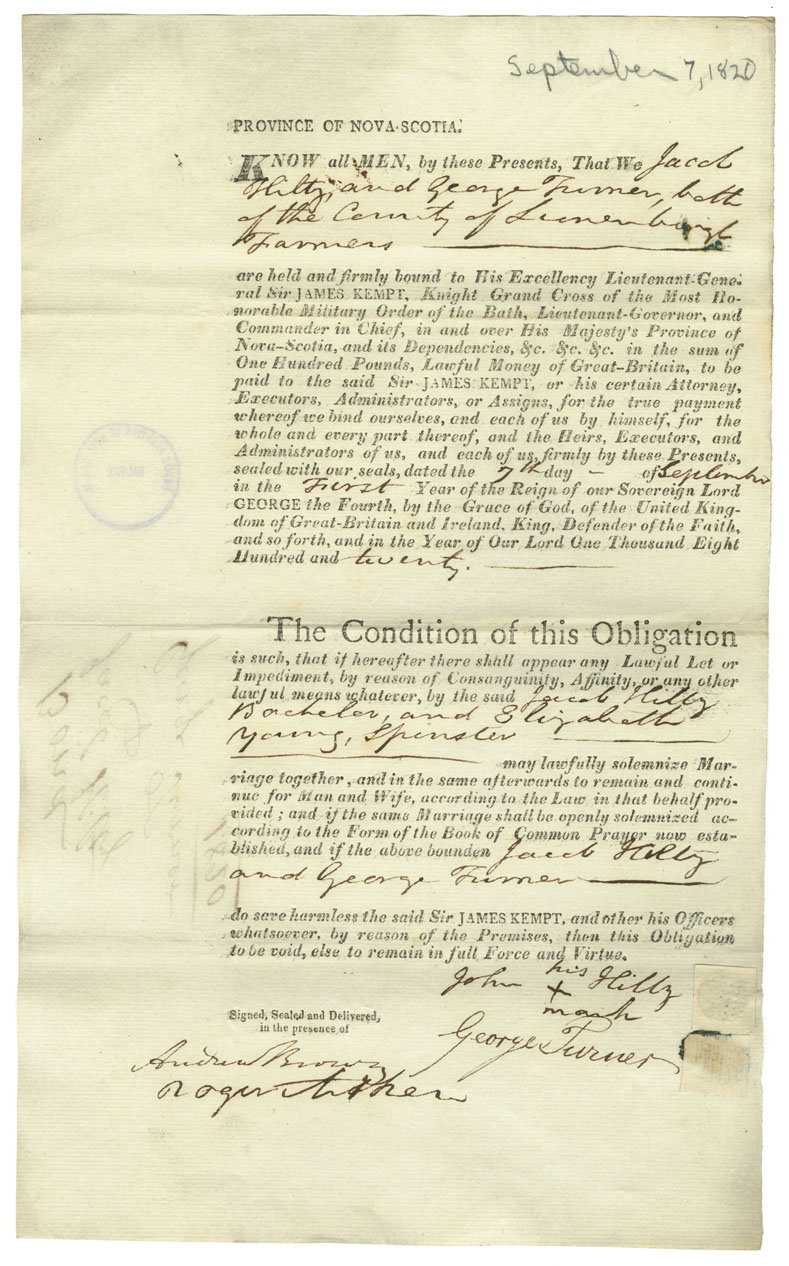 September 7, 1820
PROVINCE OF NOVA-SCOTIA.
KNOW all MEN, by these Presents, That We Jacob
Hiltz, and George Turner, both
of the County of Lunenburgh
Farmers
are held and firmly bound to His Excellency Lieutenant-Gene-
ral Sir JAMES KEMPT, Knight Grand Cross of the Most Ho-
norable Military Order of the Bath, Lieutenant-Governor, and
Commander in Chief, in and over His Majesty's Province of
Nova-Scotia, and its Dependencies, &c. &c. &c. in the sum of
One Hundred Pounds, Lawful Money of Great-Britain, to be
paid to the said Sir JAMES KEMPT, or his certain Attorney,
Executors, Administrators, or Assigns, for the true payment
whereof we bind ourselves, and each of us by himself, for the
whole and every part thereof, and the Heirs, Executors, and
Administrators of us, and each of us, firmly by these Presents,
sealed with our seals, dated the 7th day - of September
in the First Year of the Reign of our Sovereign Lord
GEORGE the Fourth, by the Grace of God, of the United King-
dom of Great-Britain and Ireland, King, Defender of the Faith,
and so forth, and in the Year of Our Lord One Thousand Eight
Hundred and twenty.
The Condition of this Obligation
is such, that if hereafter there shall appear any Lawful Let or
Impediment, by reason of Consanguinity, Affinity, or any other
lawful means whatever, by the said Jacob Hiltz
Bachelor, and Elizabeth
Young, Spinster
may lawfully solemnize Mar-
riage together, and in the same afterwards to remain and conti-
nue for Man and Wife, according to the Law in that behalf pro-
vided; and if the same Marriage shall be openly solemnized ac-
cording to the Form of the Book of Common Prayer now esta-
blished, and if the above bounden Jacob Hiltz
and George Turner
do save harmless the said Sir JAMES KEMPT, and other his Officers
whatsoever, by reason of the Premises, then this Obligation
to be void, else to remain in full Force and Virtue.
John his Hiltz
X
mark
Signed, Sealed and Delivered,
in the presence of
George Turner
Andrew Brown
Roger Aitken